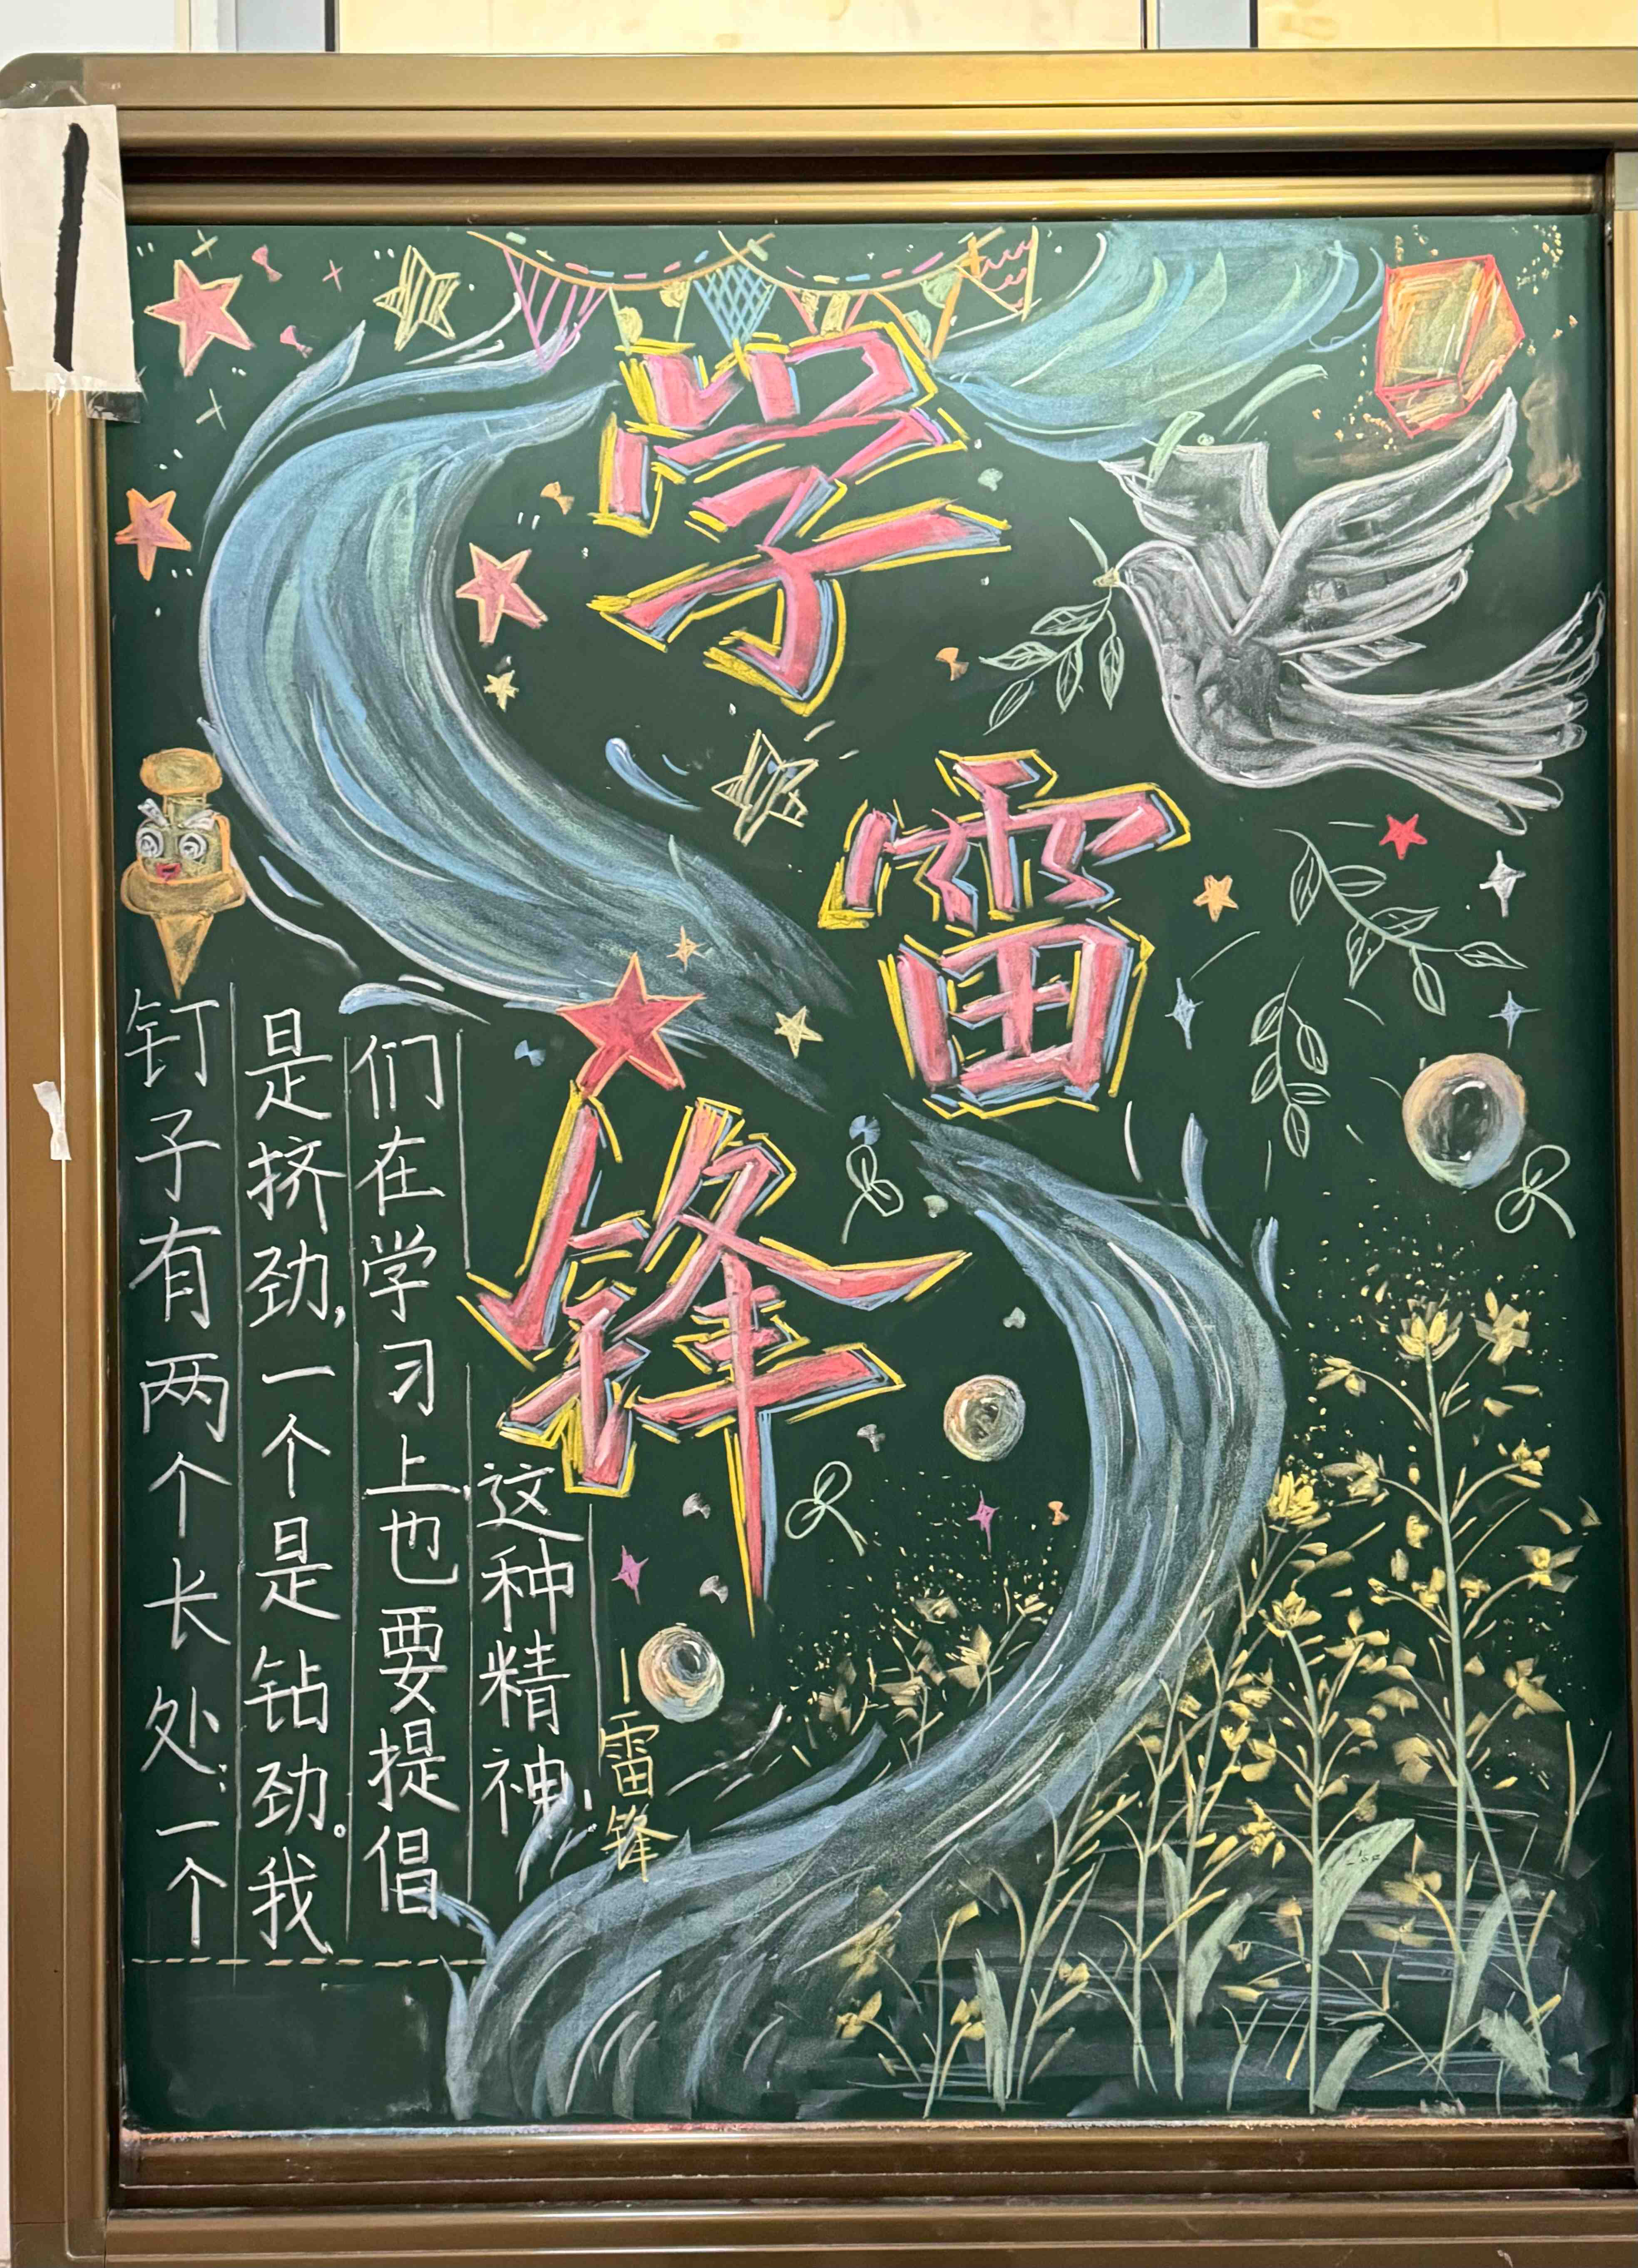 学
雷
锋
钉子有两个长处:一个
是挤劲,一个是钻劲。我
们在学习上也要提倡
这种精神,
—雷锋